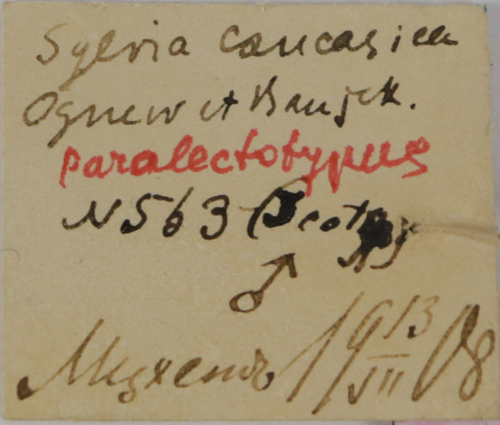 Sylvia caucasica
Ognew et Banjk.
paralectotypus
N 563 (
♂
Мцхетъ 19 13/VII 08